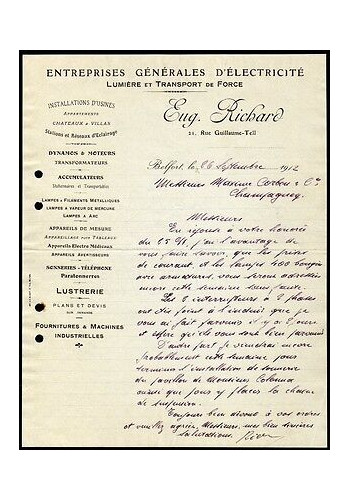 ENTREPRISES GÉNÉRALES D'ÉLECTRICITÉ
LUMIÈRE ET TRANSPORT DE FORCE
INSTALLATIONS D'USINES
APPARTEMENTS
CHATEAUX & VILLAS
Stations et Réseaux d'Éclairage
DYNAMOS & MOTEURS
TRANSFORMATEURS
ACCUMULATEURS
Stationnaires et Transportables
LAMPES A FILAMENTS MÉTALLIQUES
LAMPES A VAPEUR DE MERCURE
LAMPES A ARC
APPAREILS DE MESURE
APPAREILLAGE POUR TABLEAUX
Appareils Electro Médicaux
APPAREILS AVERTISSEURS
SONNERIES - TÉLÉPHONE
Paratonnerres
LUSTRERIE
PLANS ET DEVIS
SUR DEMANDE
FOURNITURES & MACHINES
INDUSTRIELLES
Eug. Richard
21, Rue Guillaume-Tell
Belfort, le 26 Septembre 1912
Messieurs Maxime Corbou & Cie
Champagney
Messieurs
En réponse à votre honorée
du 25 Ct, j'ai l'avantage de
vous faire savoir que les prises
de courant, et les lampes 400 bougies
avec armatures, vous seront adressées
encore cette semaine sans faute.
Les 2 interrupteurs à 2 pôles
ont été joint à l'induit que je
vous ai fait parvenir il y a 2 jours
et espère qu'ils vous sont bien parvenus
D'autre part je viendrai encore
probablement cette semaine pour
terminer l'installation de sonnerie
du pavillon de Monsieur Colonna
ainsi que pour y placer la chaine
de suspension.
Toujours bien dévoué à vos ordres
et veuillez agréer, Messieurs, mes bien sincères
salutations.